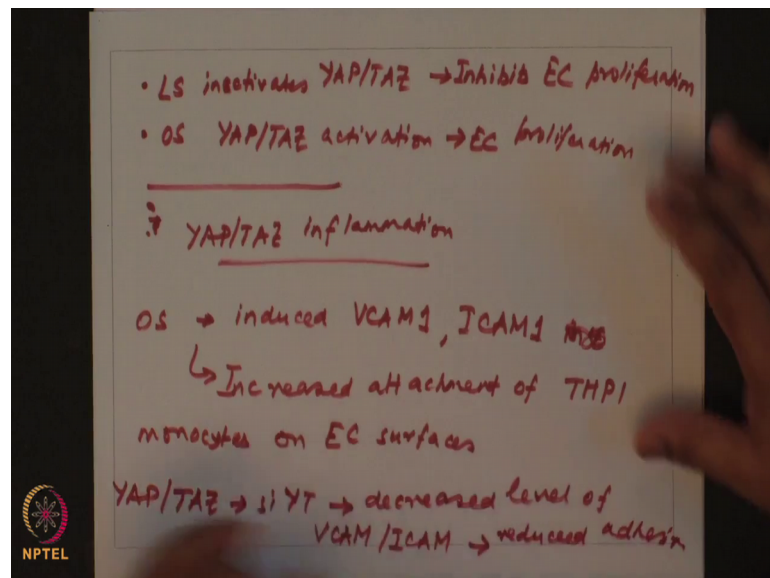 • LS inactivates YAP/TAZ → Inhibib EC proliferation
• OS YAP/TAZ activation → EC proliferation
YAP/TAZ Inflammation
OS → induced VCAM1, ICAM1
↳ Increased attachment of THP1
monocytes on EC surfaces
YAP/TAZ → si YT → decreased level of
VCAM/ICAM → reduced adhesin
NPTEL